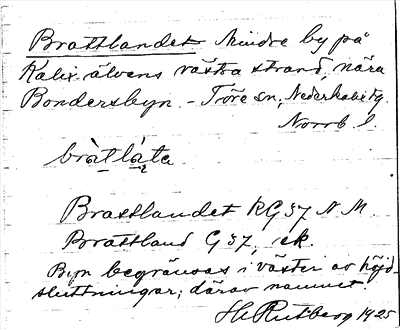 Brattlandet Mindre by på
Kalix älvens västra strand, nära
Bondersbyn. - Töre sn, Nederkalix tg.
Norrb l.
bràtlàta
Brattlandet RG 37 N.M.
Brattland G 37, ek.
Byn begränsas i väster av höjd-
sluttningar; därav namnet
H. Rutberg 1925